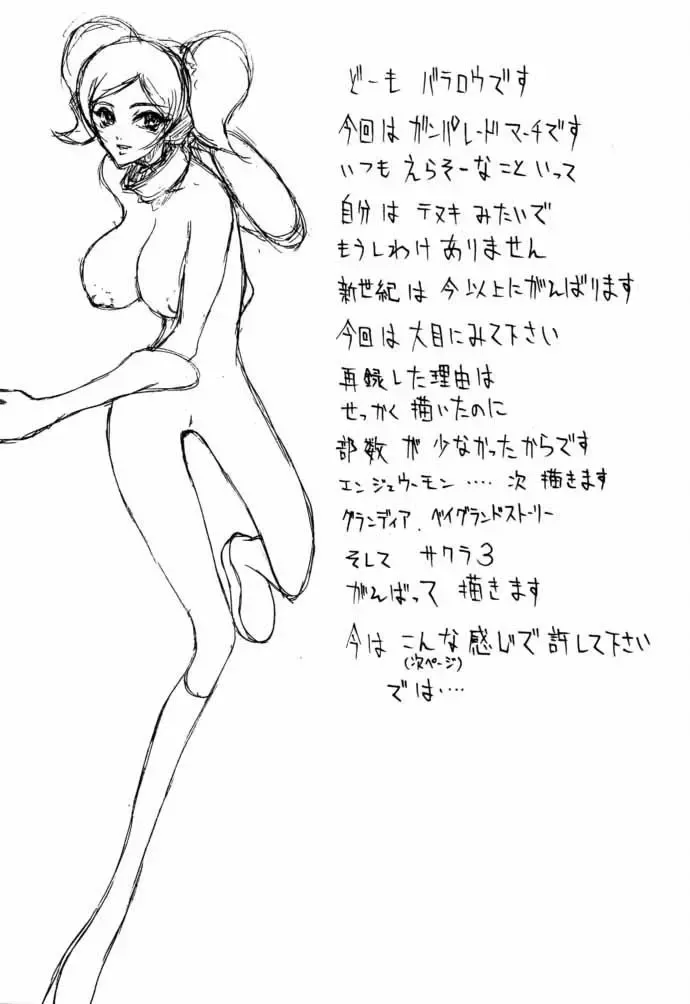 どーも バラロウです
今回は ガンパレードマーチです
いつも えらそーなこといって
自分は テヌキ みたいで
もうしわけ ありません
新世紀は 今以上にがんばります
今回は 大目にみて下さい
再録した理由は
せっかく 描いたのに
部数 が 少なかったからです
エンジェウーモン …. 次 描きます
グランディア . ベイグランドストーリー
そして サクラ3
がんばって 描きます
今は こんな感じで 許して下さい
(次ページ)
では….